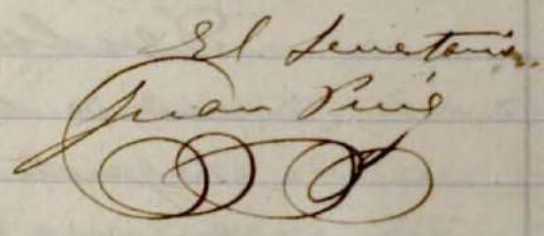 El Secretario.
Juan Puig